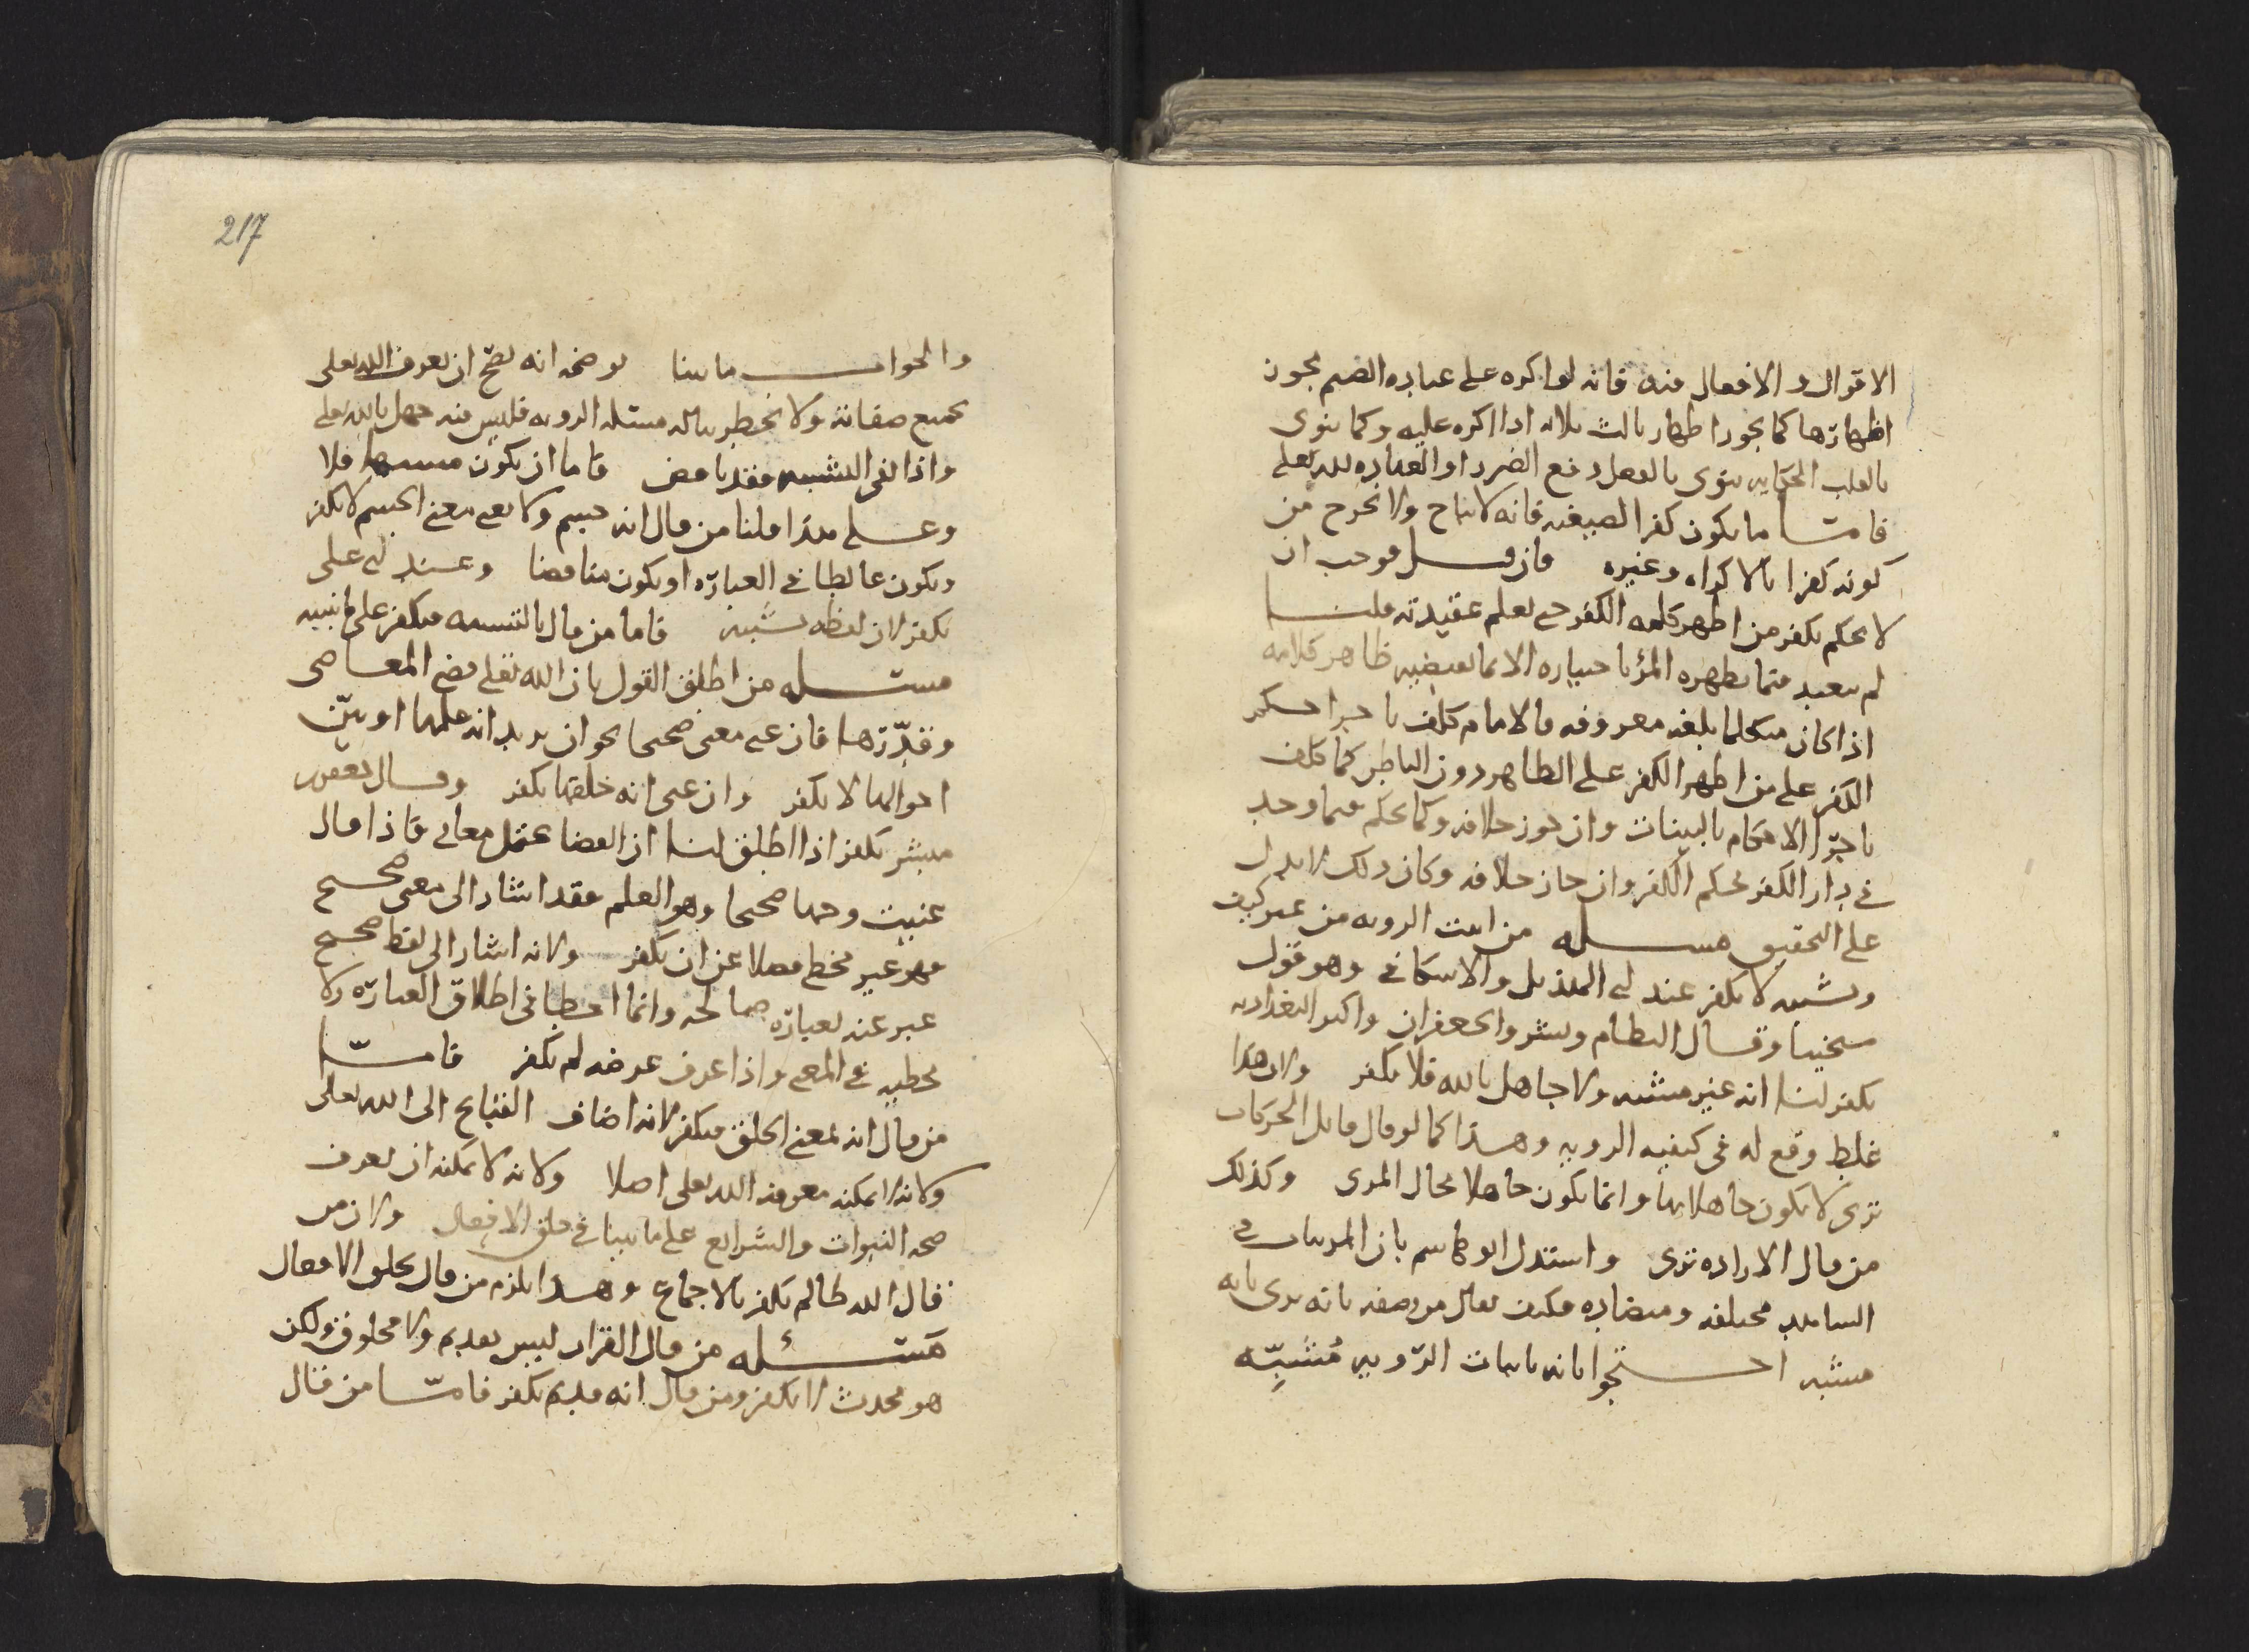 الاقوال والافعال فيه فانه لو اكره على عباده الصنم يجوز
اظهارها كما يجوز اظهار ثالث ثلاثه اذا اكره عليه وكما ينوى
بالقلب الحكايه ينوى بالفعل دفع الضرر او العباده لله تعلى
فامـــا ما يكون كفرا لصيغته فانه لا يباح ولا يخرج من
كونه كفرا بالاكراه وغيره فان قيـــل فوجب ان
لا يحكم بكفر من اظهر كلمه الكفر حتى يعلم عقيدته قلنـــا
لم يتعبد فيما يظهره المرؤ باختياره الا بما يقتضيه ظاهر كلامه
اذا كان متكلما بلغه معروفه فالامام كلف باجرا حكم
الكفر على من اظهر الكفر على الظاهر دون الباطن كما كلف
باجرا الاحكام بالبينات وان جوز خلافه وكما يحكم فيما وجد
في دار الكفر بحكم الكفر وان جاز خلافه وكان ذلك لا يدل
على التحقيق مســـله من اثبت الرويه من غير كيف
وتشبيه لا يكفر عند ابي الهذيل والاسكافي وهو قول
شيخينا وقـــال النظام وبشر والجعفران واكثر البغداديه
يكفر لنـــا انه غير مشبه ولا جاهل بالله فلا يكفر ولان هذا
غلط وقع له في كيفيه الرويه وهـــذا كما لو قال قايل الحركات
ترى لا يكون جاهلا بها وانما يكون جاهلا بحال المرى وكذلك
من قال الاراده ترى واستدل ابو هاشم بان المريات في
الشاهد مختلفه ومتضاده فكيف يقال من وصفه بانه يرى بانه
مشبه احـــتجوا بانه باثبات الرويه مُشبِّه
217
والجواب ما بينا يوضحه انه يصح ان يعرف الله تعلى
بجميع صفاته ولا يخطر بباله مسئله الرويه فليس فيه جهل بالله تعلى
واذا نفى التشبيه فقد ناقض فاما ان يكون مشبها فلا
وعـــلى هذا قلنا من قال انه جسم ولا يعني معنى الجسم لا يكفر
ويكون غالطا في العباره او يكون مناقضا وعـــند ابي على
يكفر لان لفظه تشبيه فاما من قال بالتشبيه فيكفر على ما نبينه
مســـله من اطلق القول بان الله تعلى قضى المعاصى
وقدّرها فان عنى معنى صحيحا نحو ان يريد انه علمها او بيّن
احوالها لا يكفر وان عنى انه خلقها يكفر وقـــال جعفر بن
مبشر يكفر اذا اطلق لنـــا ان القضا يحتمل معاني فاذا قال
عنيت وجها صحيحا وهو العلم فقد اشار الى معنى صحيـــح
فهو غير مخط فضلا عن ان يكفر ولانه اشار الى لفظ صحيـــح
عبر عنه بعباره صالحه وانما اخطا في اطلاق العباره ولا
نخطيه في المعنى واذا عرف غرضه لم يكفر فامـــا
من قال انه بمعنى الخلق فيكفر لانه اضاف القبايح الى الله تعلى
ولانه لا يمكنه معرفه الله تعلى اصلا ولانه لا يمكنه ان يعرف
صحه النبوات والشرايع على ما بينا في خلق الافعال ولان من
قال الله ظالم يكفر بالاجماع وهـــذا يلزم من قال بخلق الافعال
مســـئله من قال القران ليس بقديم ولا مخلوق ولكن
هو محدث لا يكفر ومن قال انه قديم يكفر فامـــا من قال